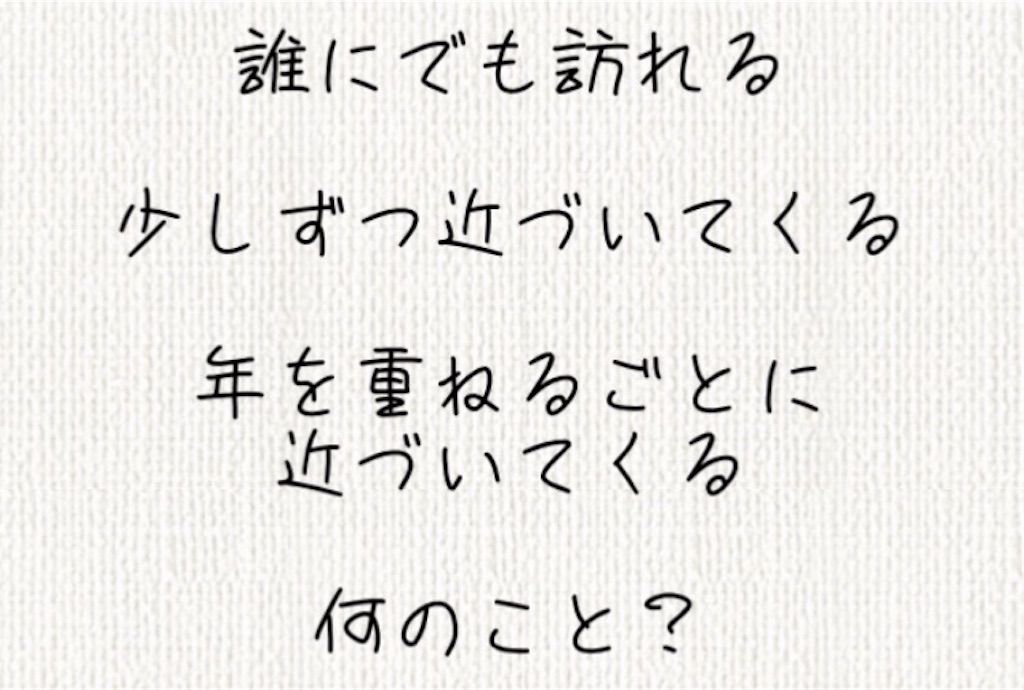 誰にでも訪れる
少しずつ近づいてくる
年を重ねるごとに
近づいてくる
何のこと？